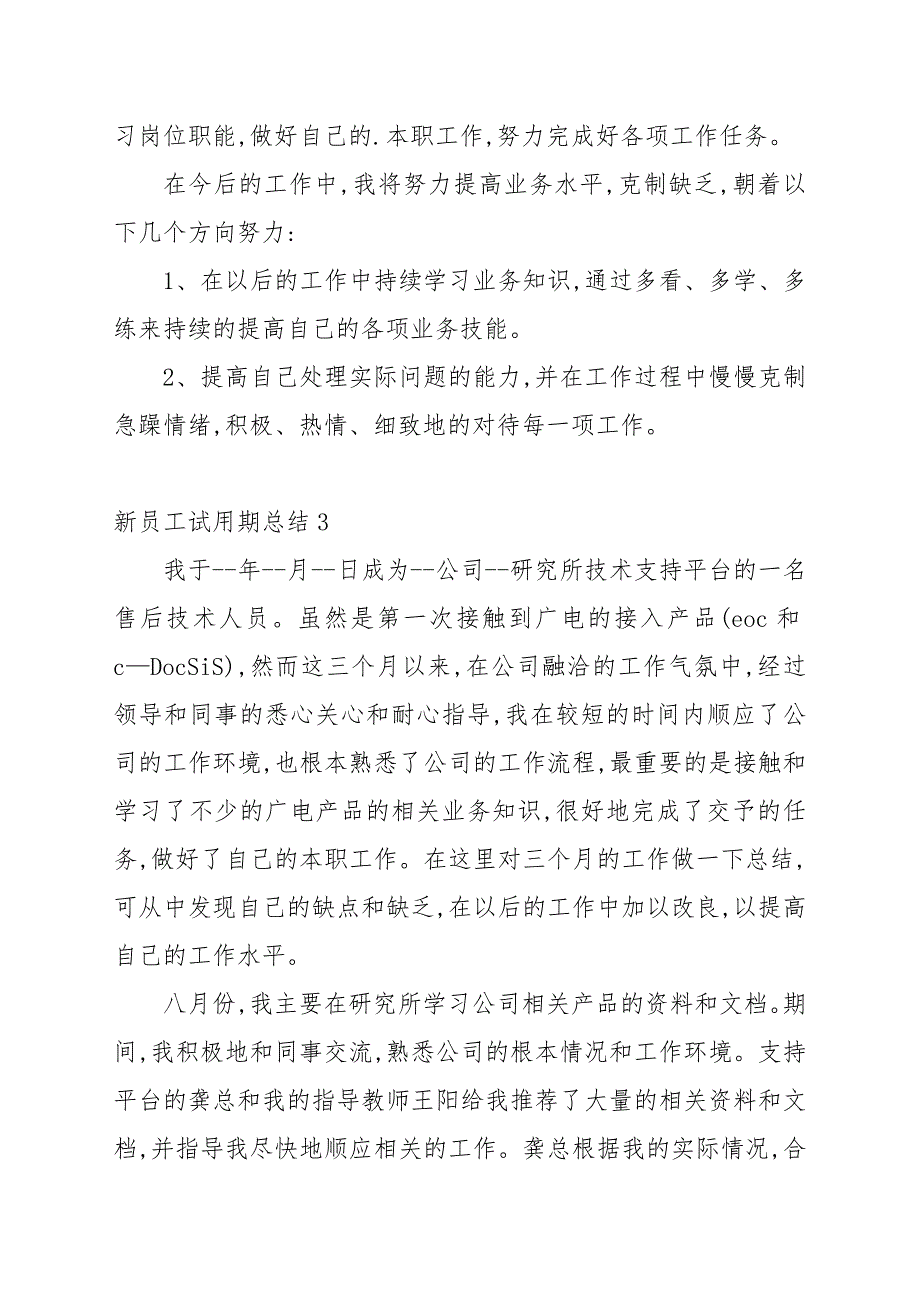 习岗位职能,做好自己的.本职工作,努力完成好各项工作任务。
在今后的工作中,我将努力提高业务水平,克制缺乏,朝着以
下几个方向努力:
1、在以后的工作中持续学习业务知识,通过多看、多学、多
练来持续的提高自己的各项业务技能。
2、提高自己处理实际问题的能力,并在工作过程中慢慢克制
急躁情绪,积极、热情、细致地的对待每一项工作。
新员工试用期总结3
我于--年--月--日成为--公司--研究所技术支持平台的一名
售后技术人员。虽然是第一次接触到广电的接入产品(eoc 和
c—DocSiS),然而这三个月以来,在公司融洽的工作气氛中,经过
领导和同事的悉心关心和耐心指导,我在较短的时间内顺应了公
司的工作环境,也根本熟悉了公司的工作流程,最重要的是接触和
学习了不少的广电产品的相关业务知识,很好地完成了交予的任
务,做好了自己的本职工作。在这里对三个月的工作做一下总结,
可从中发现自己的缺点和缺乏,在以后的工作中加以改良,以提高
自己的工作水平。
八月份,我主要在研究所学习公司相关产品的资料和文档。期
间,我积极地和同事交流,熟悉公司的根本情况和工作环境。支持
平台的龚总和我的指导教师王阳给我推荐了大量的相关资料和文
档,并指导我尽快地顺应相关的工作。龚总根据我的实际情况,合